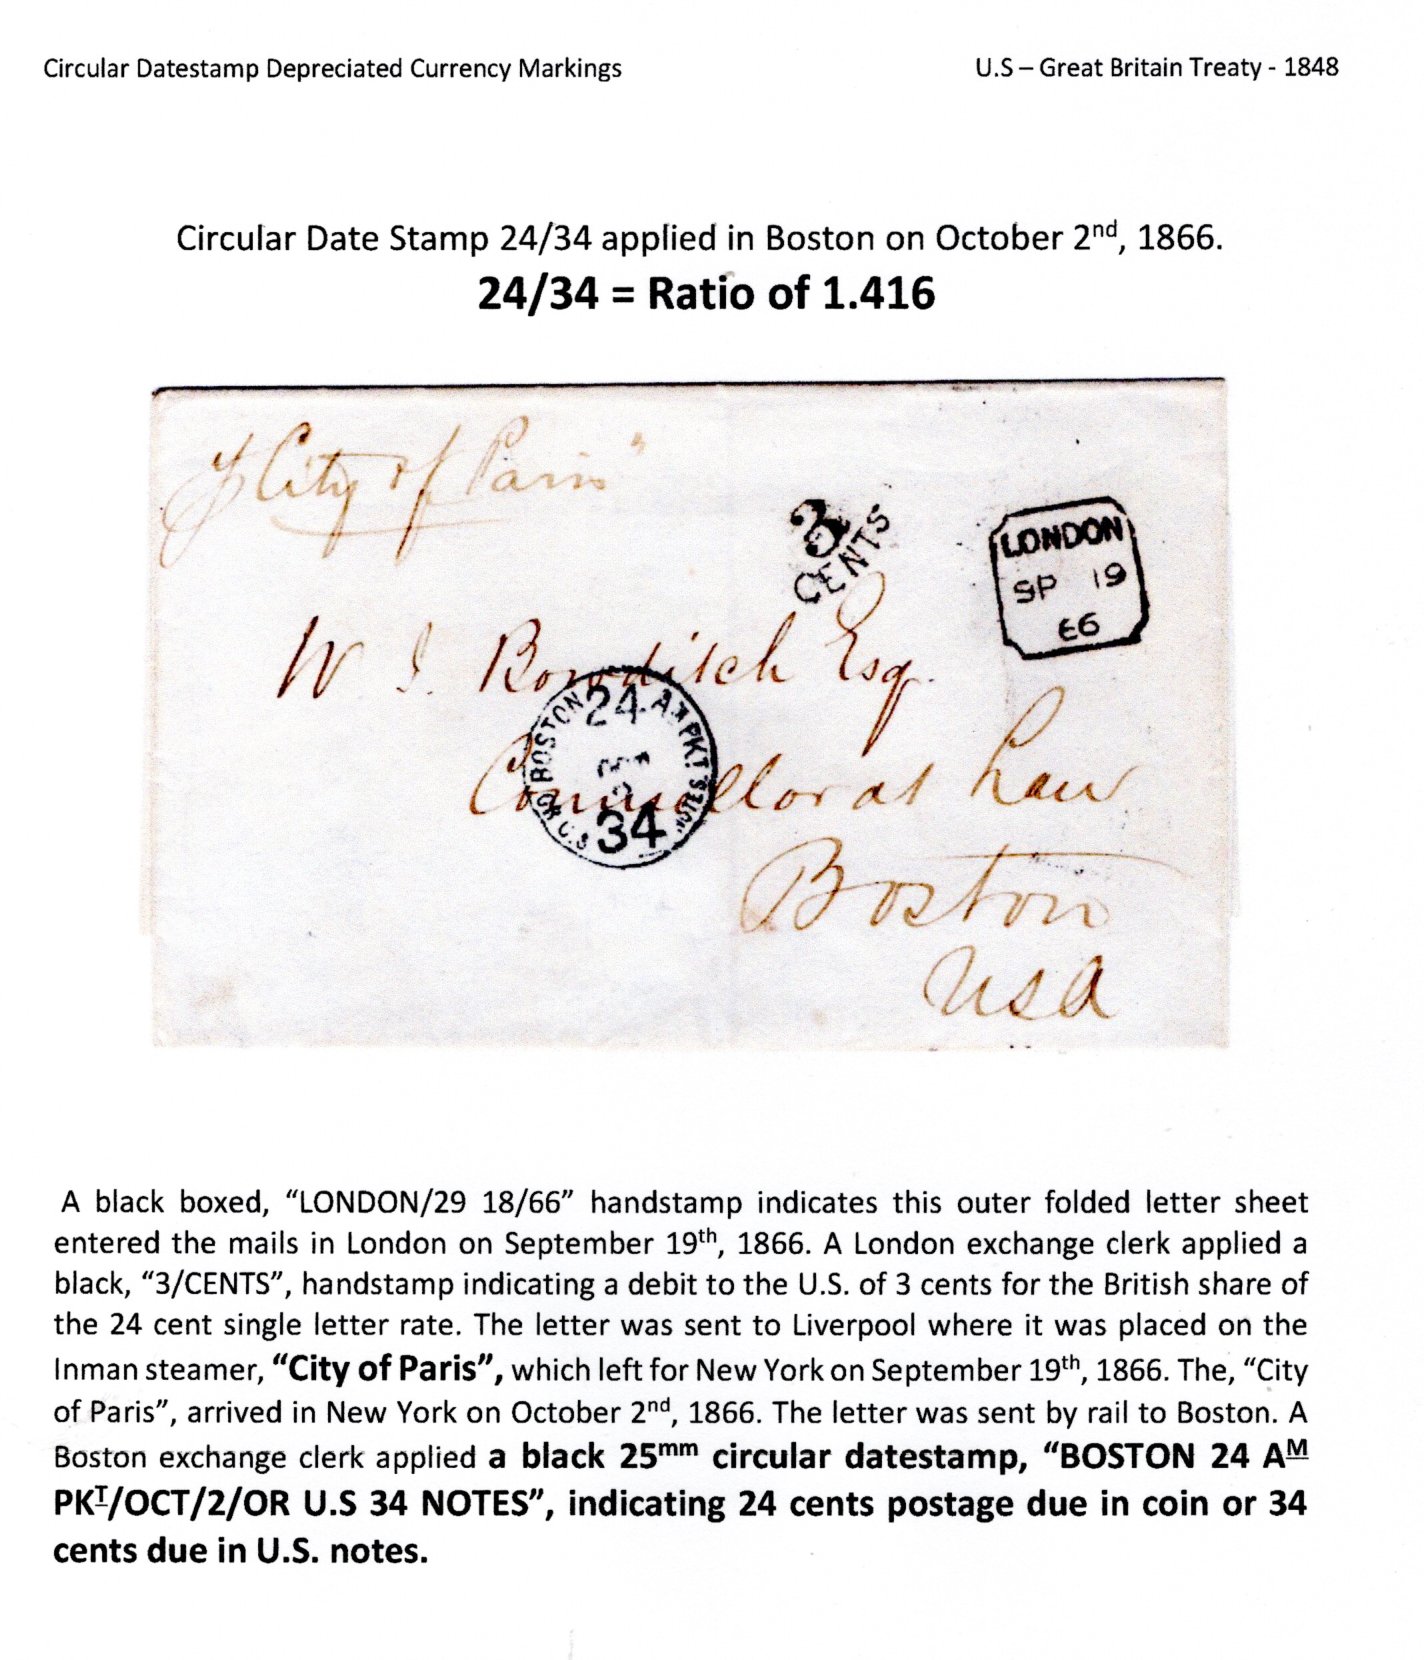 Circular Datestamp Depreciated Currency Markings
U.S – Great Britain Treaty - 1848
Circular Date Stamp 24/34 applied in Boston on October 2nd, 1866.
24/34 = Ratio of 1.416
City of Paris"
3
CENTS
LONDON
SP 19
66
W I. Bowditch Esq.
BOSTON 24 AM PKT
2
OR U.S 34 NOTES
Counsellor at Law
Boston
USA
A black boxed, “LONDON/29 18/66” handstamp indicates this outer folded letter sheet
entered the mails in London on September 19th, 1866. A London exchange clerk applied a
black, “3/CENTS”, handstamp indicating a debit to the U.S. of 3 cents for the British share of
the 24 cent single letter rate. The letter was sent to Liverpool where it was placed on the
Inman steamer, “City of Paris”, which left for New York on September 19th, 1866. The, “City
of Paris”, arrived in New York on October 2nd, 1866. The letter was sent by rail to Boston. A
Boston exchange clerk applied a black 25mm circular datestamp, “BOSTON 24 AM
PKT/OCT/2/OR U.S 34 NOTES”, indicating 24 cents postage due in coin or 34
cents due in U.S. notes.